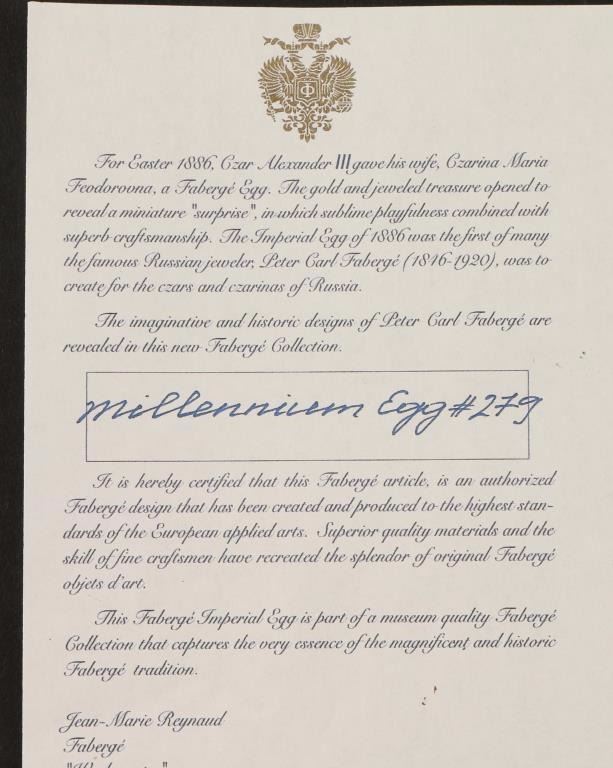 Ф
For Easter 1886, Czar Alexander III gave his wife, Czarina Maria
Feodorovna, a Fabergé Egg. The gold and jeweled treasure opened to
reveal a miniature "surprise", in which sublime playfulness combined with
superb craftsmanship. The Imperial Egg of 1886 was the first of many
the famous Russian jeweler, Peter Carl Fabergé (1846-1920), was to
create for the czars and czarinas of Russia.
The imaginative and historic designs of Peter Carl Fabergé are
revealed in this new Fabergé Collection.
Millennium Egg #279
It is hereby certified that this Fabergé article, is an authorized
Fabergé design that has been created and produced to the highest stan-
dards of the European applied arts. Superior quality materials and the
skill of fine craftsmen have recreated the splendor of original Fabergé
objets d'art.
This Fabergé Imperial Egg is part of a museum quality Fabergé
Collection that captures the very essence of the magnificent and historic
Fabergé tradition.
Jean-Marie Reynaud
Fabergé